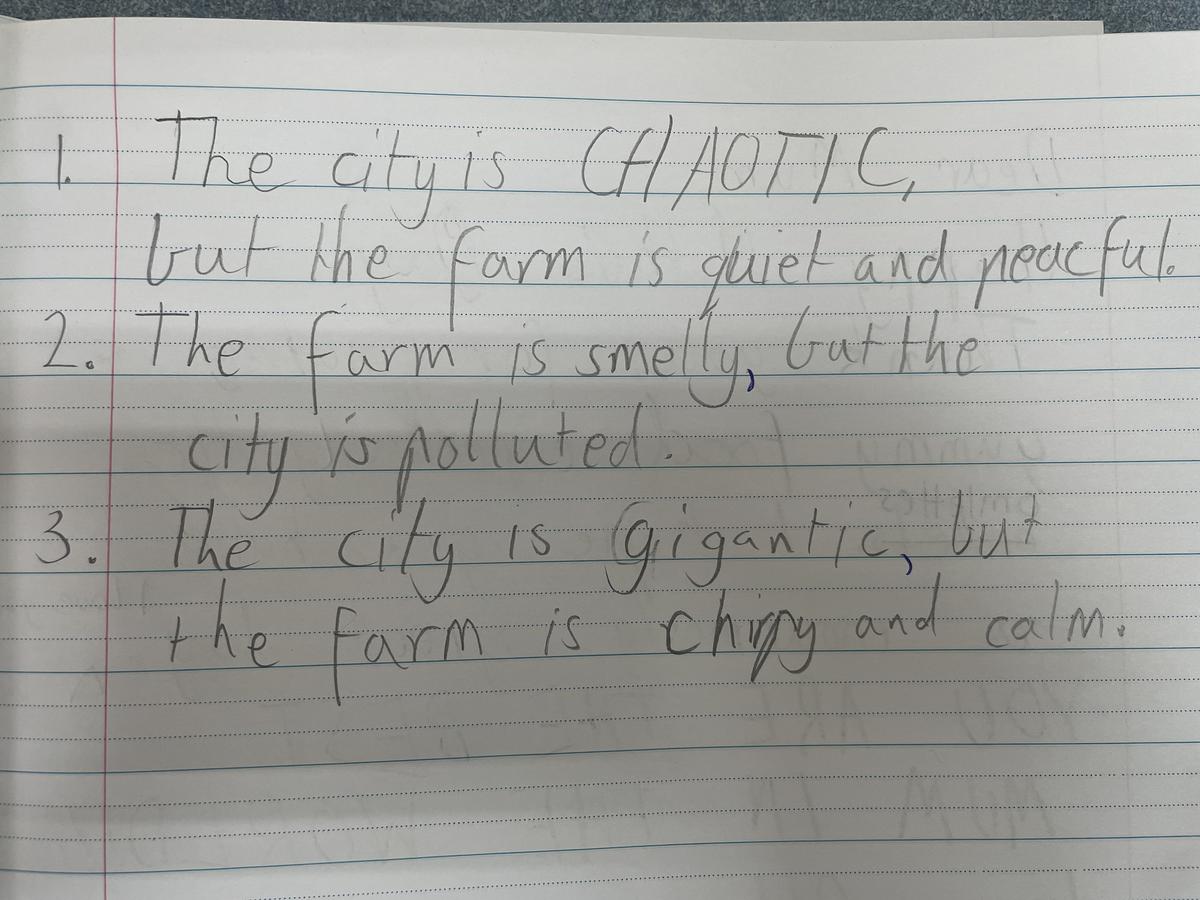 1. The city is CHAOTIC,
but the farm is quiet and peacful.
2. The farm is smelly, but the
city is polluted.
3. The city is gigantic, but
the farm is chirpy and calm.